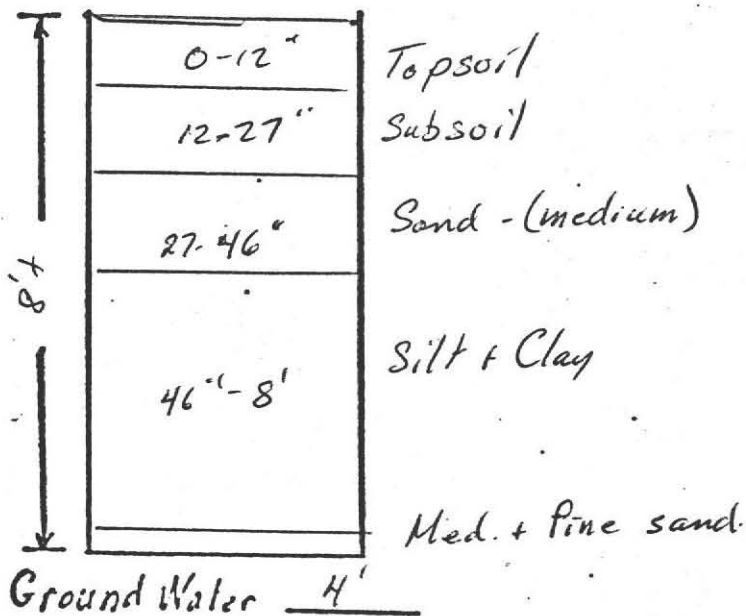 0-12" Topsoil
12-27" Subsoil
27-46" Sand - (medium)
8'±
46"-8' Silt + Clay
Med. + fine sand.
Ground Water 4'